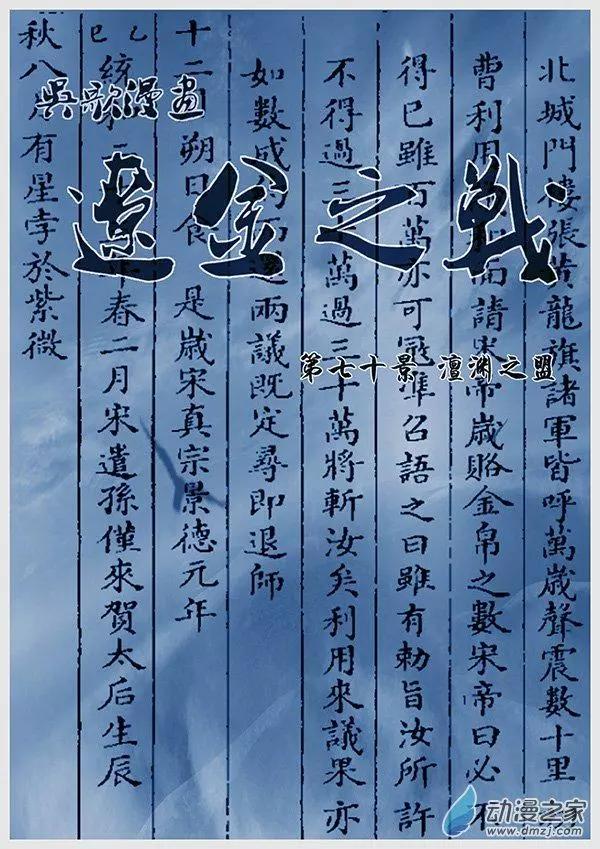 吳歌漫畫
遼金之戰
第七十景 澶淵之盟
北城門樓張黃龍旗諸軍皆呼萬歲聲震數十里
曹利用 面請宋帝歲賂金帛之數宋帝曰必不
得已雖百萬亦可冠準召語之曰雖有勅旨汝所許
不得過三十萬過三十萬將斬汝矣利用來議果亦
如數成 兩議既定尋即退師
十二月朔日食 是歲宋真宗景德元年
乙巳統和 春二月宋遣孫僅來賀太后生辰
秋八月有星孛於紫微
动漫之家
www.dmzj.com